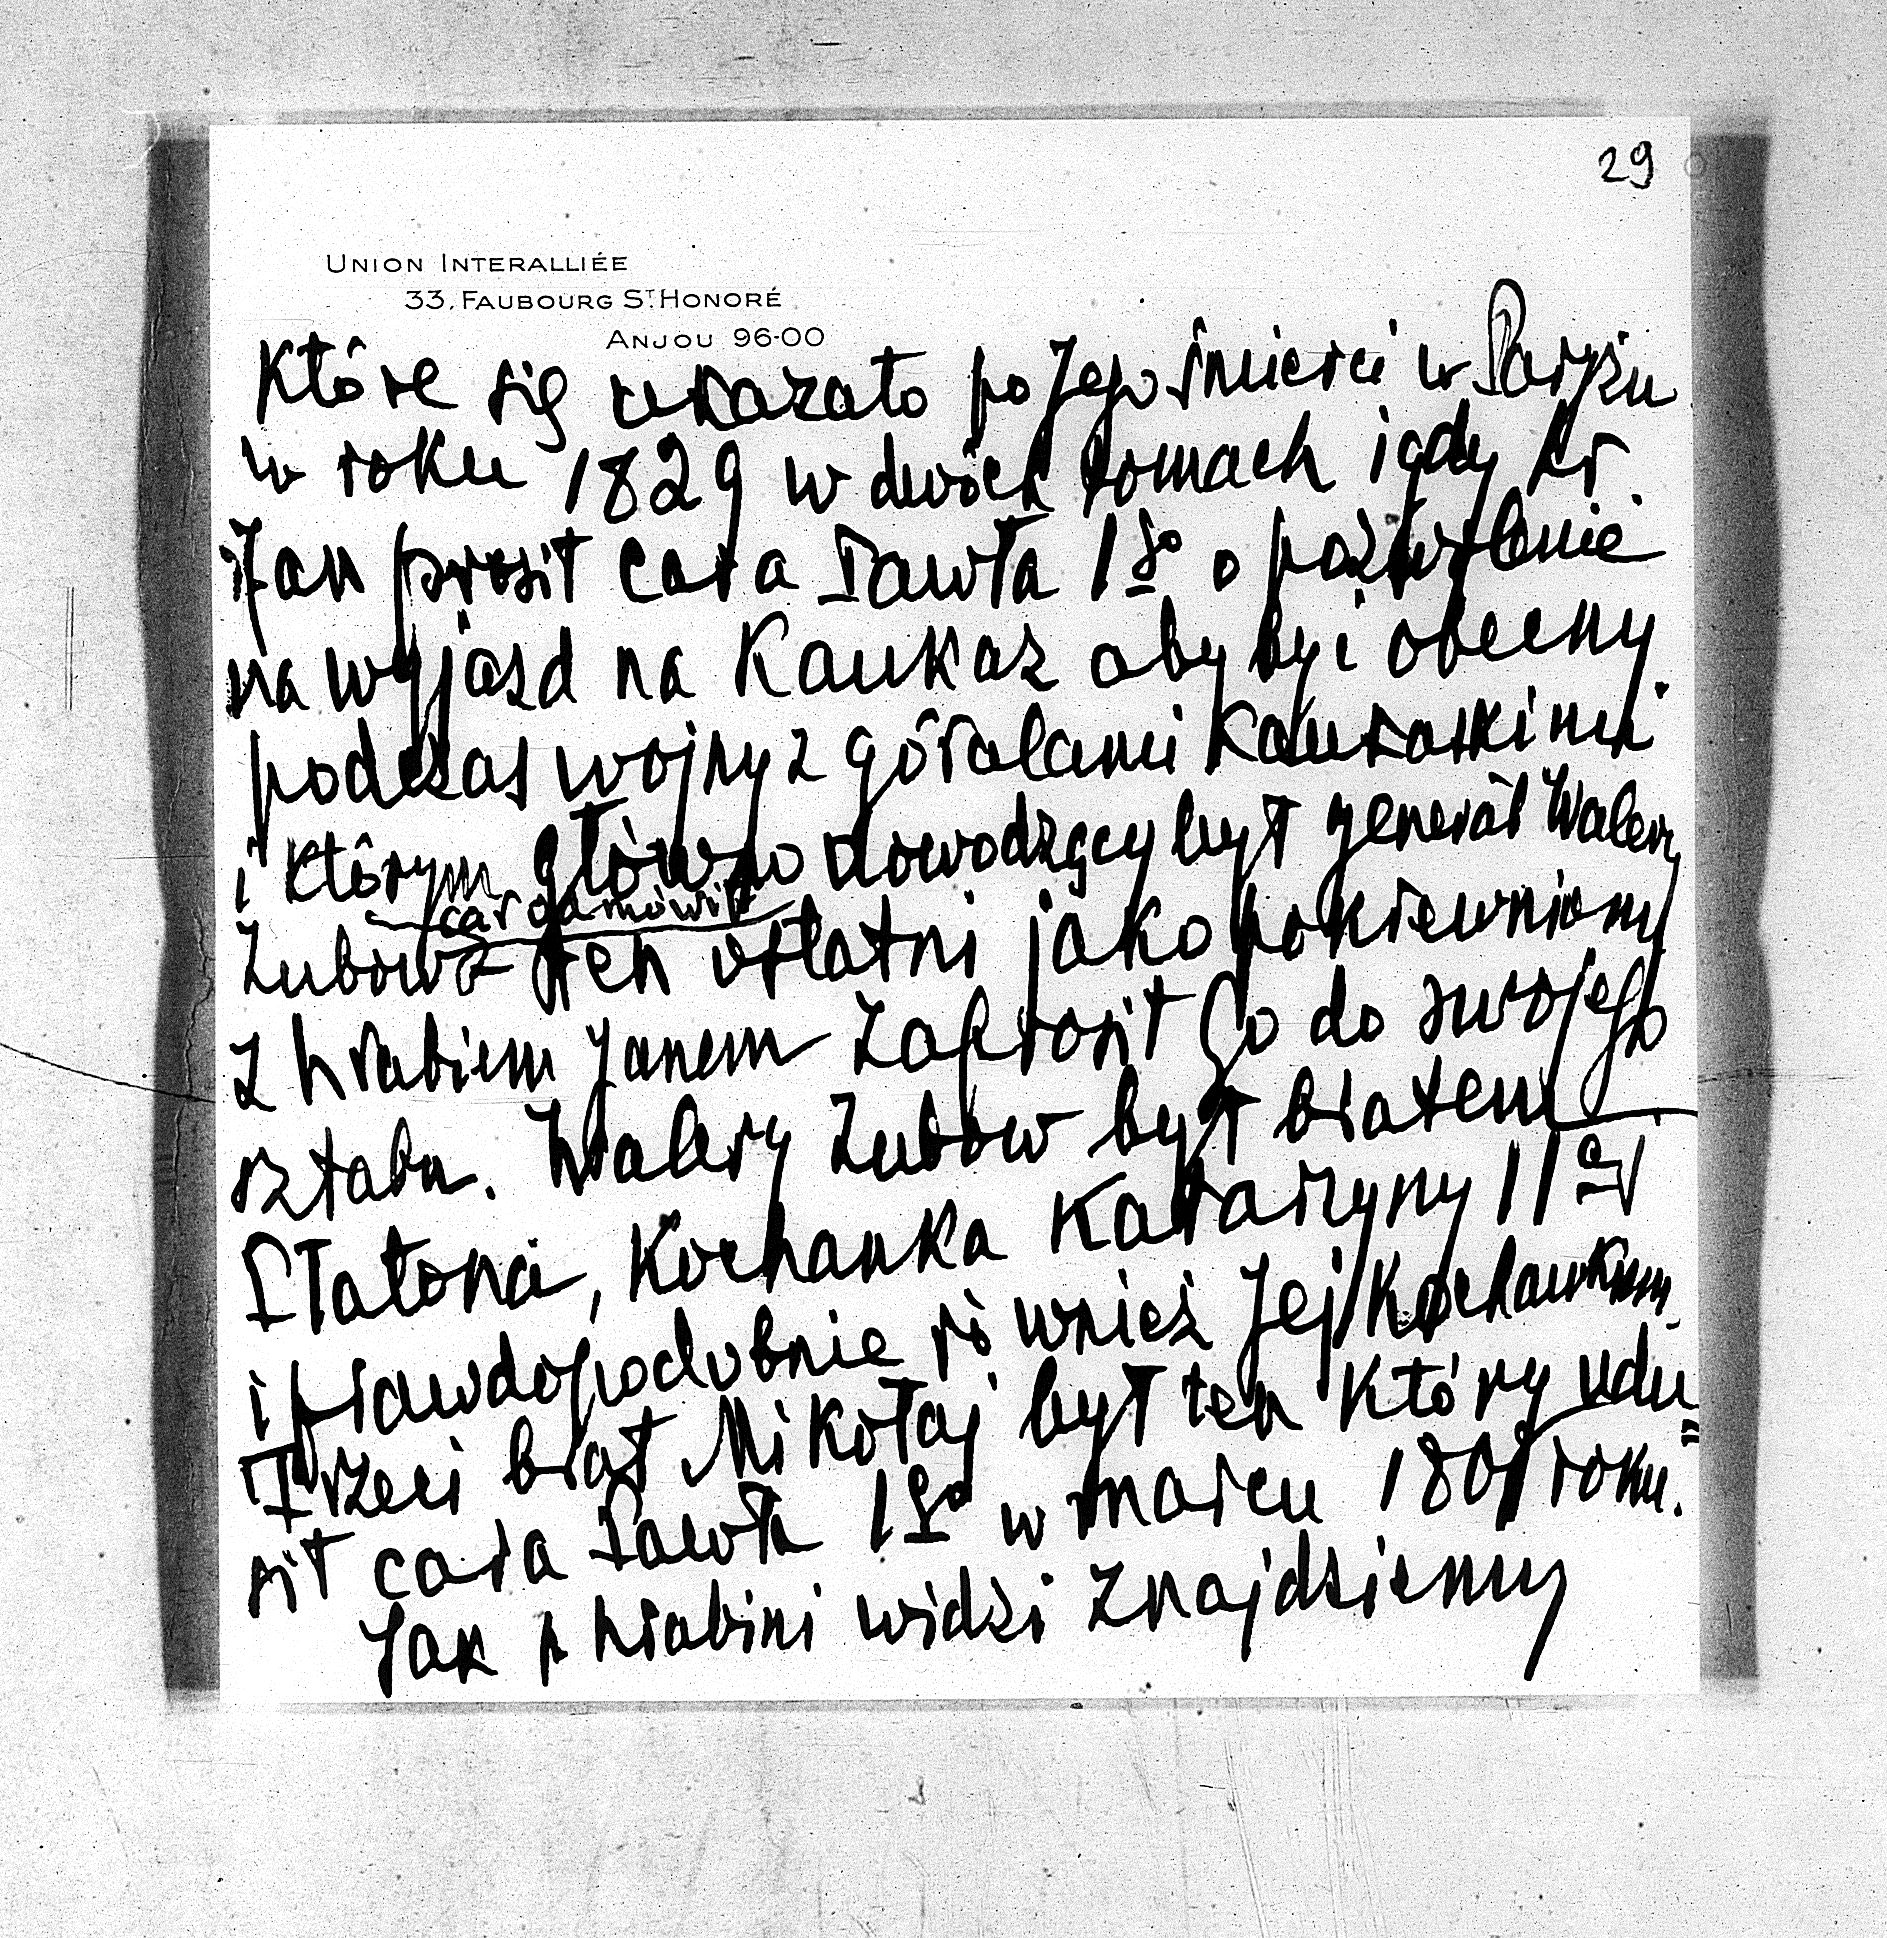 29
UNION INTERALLIÉE
33, FAUBOURG ST. HONORÉ
ANJOU 96-00
Które się ukazało po Jego śmierci w Paryżu
w roku 1829 w dwóch tomach i gdy hr
Jan prosił cara Pawła 1go o pozwolenie
na wyjazd na Kaukaz aby być obecny
podczas wojny z góralami Kaukaskimi
i którym główno dowodzący był generał Walery
car odmówił
Zubow ten ostatni jako pokrewniony
z hrabiem Janem zaprosił Go do swojego
sztabu. Walery Zubow był bratem
Płatona, Kochanka Katarzyny IIej
i prawdopodobnie również Jej Kochankiem
Trzeci brat Mikołaj był ten który udu=
sił cara Pawła 1go w marcu 1801 roku.
Jak p hrabini widzi znajdziemy